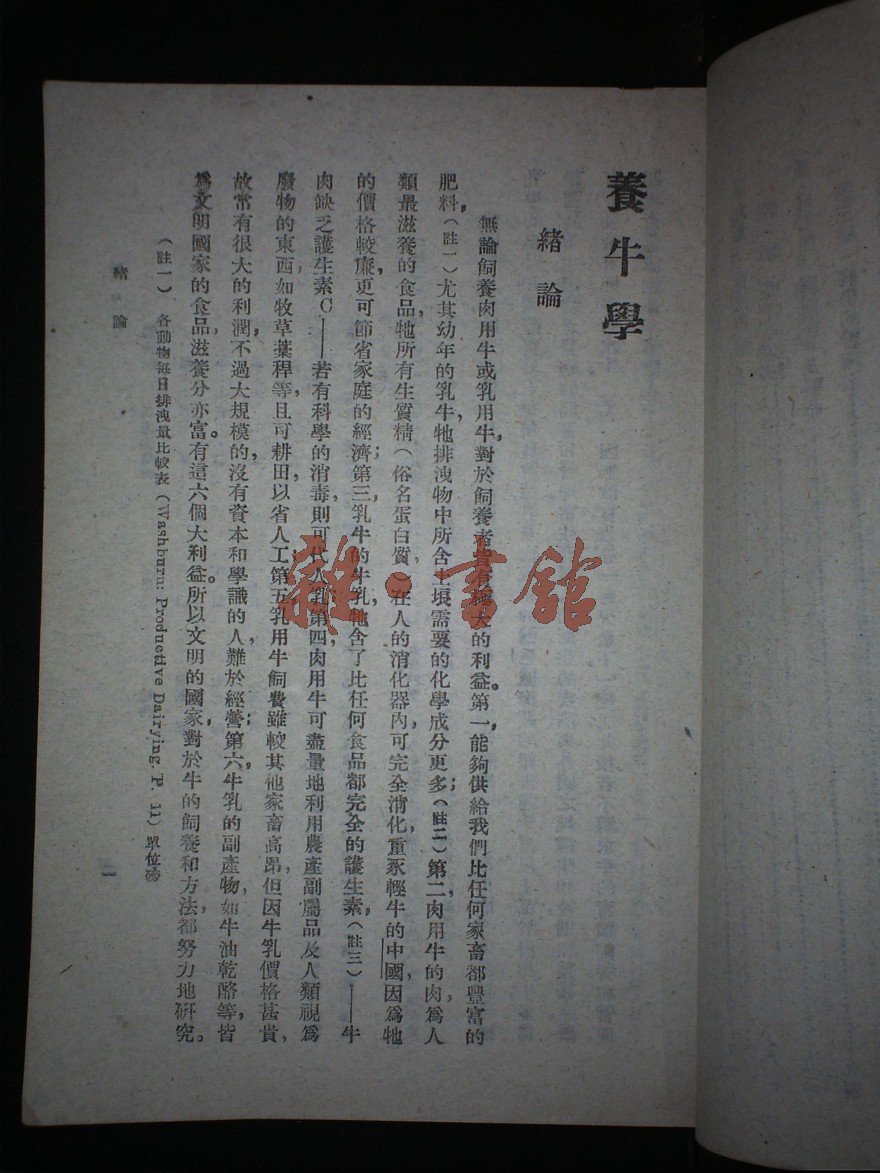 養牛學
緒論
無論飼養肉用牛或乳用牛，對於飼養者皆有極大的利益。第一，能夠供給我們比任何家畜都豐富的
肥料，（註一）尤其幼年的乳牛，牠排洩物中所含土壤需要的化學成分更多；（註二）第二，肉用牛的肉，為人
類最滋養的食品，牠所有生質精（俗名蛋白質，）在人的消化器內，可完全消化，重豕輕牛的中國，因為牠
的價格較廉，更可節省家庭的經濟；第三，乳牛的牛乳，牠含了比任何食品都完全的護生素，（註三）——牛
肉缺乏護生素C——若有科學的消毒，則可代人乳；第四，肉用牛可盡量地利用農產副屬品及人類視為
廢物的東西，如牧草藁稈等，且可耕田以省人工；第五，乳用牛飼費雖較其他家畜高昂，但因牛乳價格甚貴，
故常有很大的利潤，不過大規模的，沒有資本和學識的人，難於經營；第六，牛乳的副產物，如牛油乾酪等，皆
爲文明國家的食品，滋養分亦富。有這六個大利益。所以文明的國家，對於牛的飼養和方法，都努力地研究。
（註一）　各動物每日排洩量比較表（Washburn: Productive Dairying P. 11）單位磅
緒論
一
雜·書館